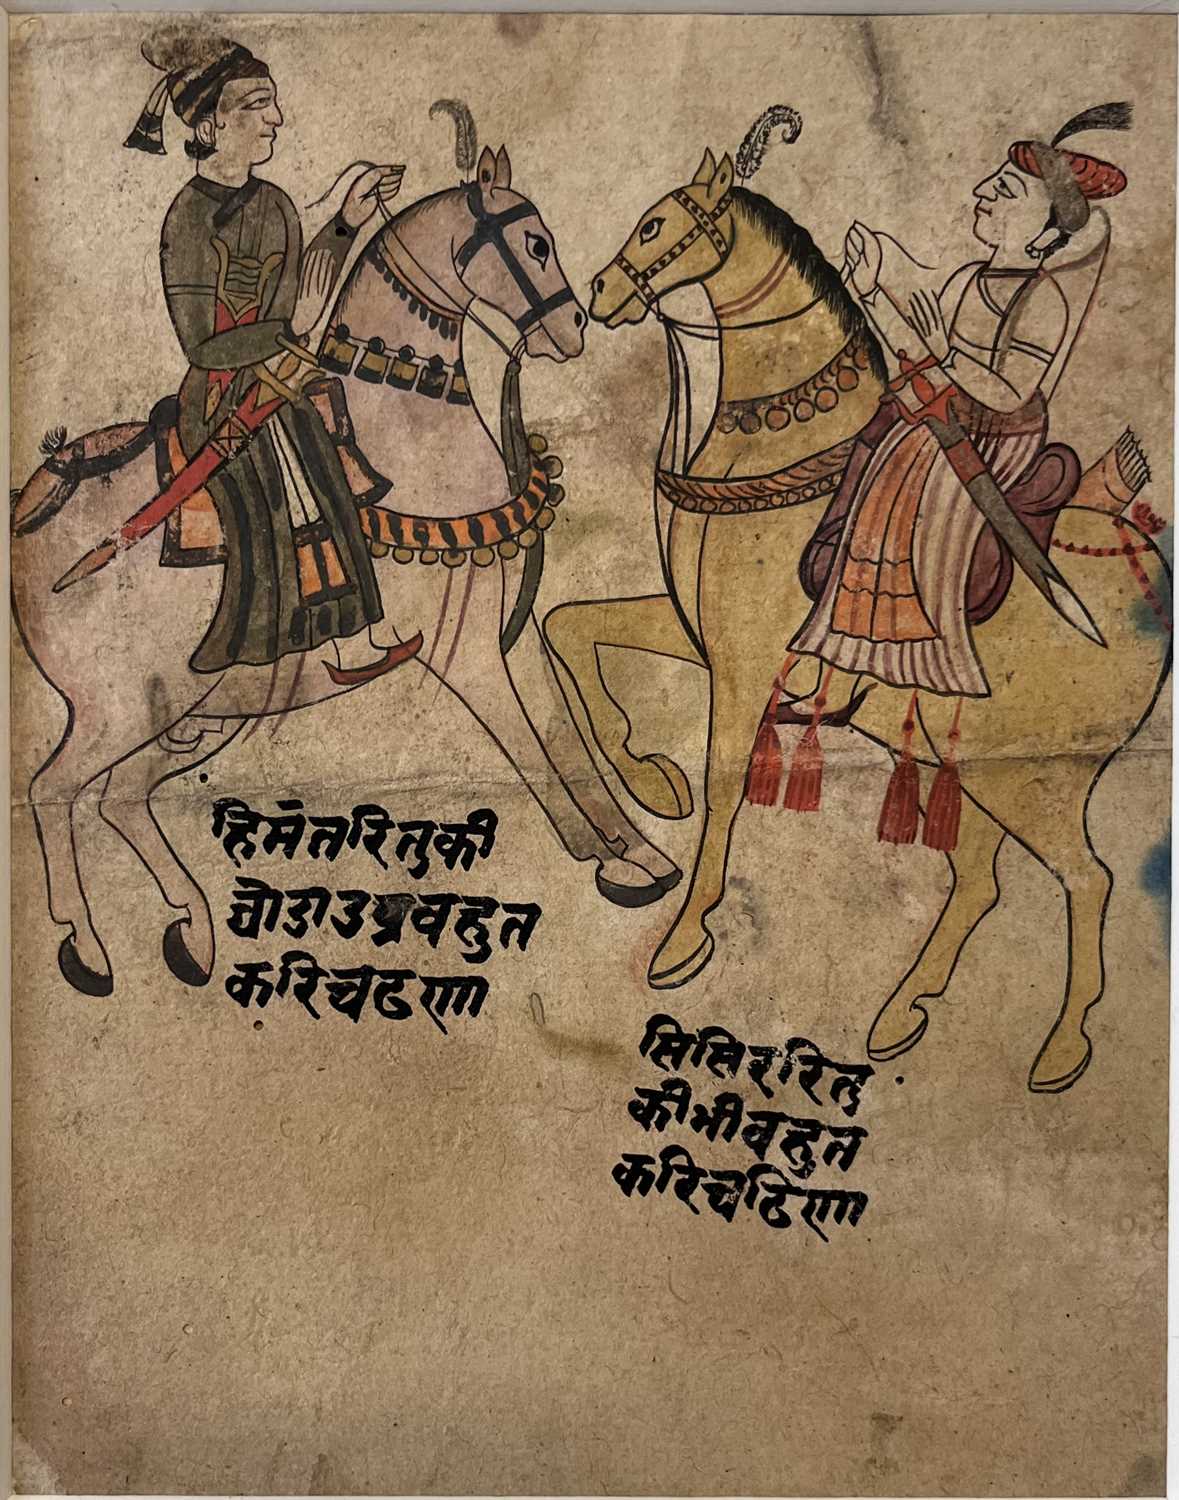 हिमंतरितुकी
चोडाउप्रवहुत
करिचढणा
सिसिररितु
कीभीवहुत
करिचढिणा